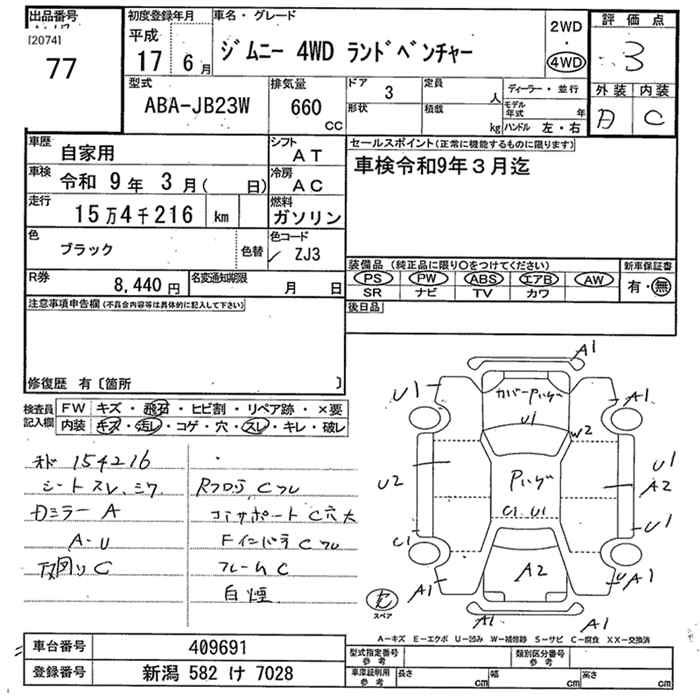 出品番号
[20741
77
初度登録年月
平成
17 6月
車名・グレード
ジムニー 4WD ランドベンチャー
2WD
・
4WD
評価点
3
外装 内装
D C
型式
ABA-JB23W
排気量
660
cc
ドア
3
定員
人
形状
積載
kg
ディーラー・並行
モデル年式
年
ハンドル 左・右
車歴
自家用
シフト
AT
車検
令和 9年 3月( 日)
冷房
AC
走行
15万4千216 km
燃料
ガソリン
色
ブラック
色替
色コード
ZJ3
R券
8,440 円
名変通知期限
月 日
セールスポイント(正常に機能するものに限ります)
車検令和9年3月迄
装備品 (純正品に限り○をつけてください)
PS PW ABS エアB AW
SR ナビ TV カワ
新車保証書
有・無
後日品
注意事項申告欄(不具合内容等は具体的に記入して下さい)
修復歴 有〔箇所 〕
検査員
記入欄
FW キズ・飛石・ヒビ割・リペア跡・×要
内装 キズ・汚レ・コゲ・穴・スレ・キレ・破レ
オド 154216
シートスレ、シワ
Dミラー A
A-U
下回り C
Rフロア C フル
コアサポート C穴大
Fインパネ C フル
フレーム C
白煙
A1
U1
カバーPハゲ
A1
U1
W2
U2
Pハゲ
U1
A2
C1 U1
C1
U1
A1
A2
U A1
A1
A1
スペア
A-キズ E-エクボ U-凹み W-補修跡 S-サビ C-腐食 XX-交換済
車台番号
409691
登録番号
新潟 582 け 7028
型式指定番号
参考
類別区分番号
参考
車庫証明用
参考
長さ cm
幅 cm
高さ cm